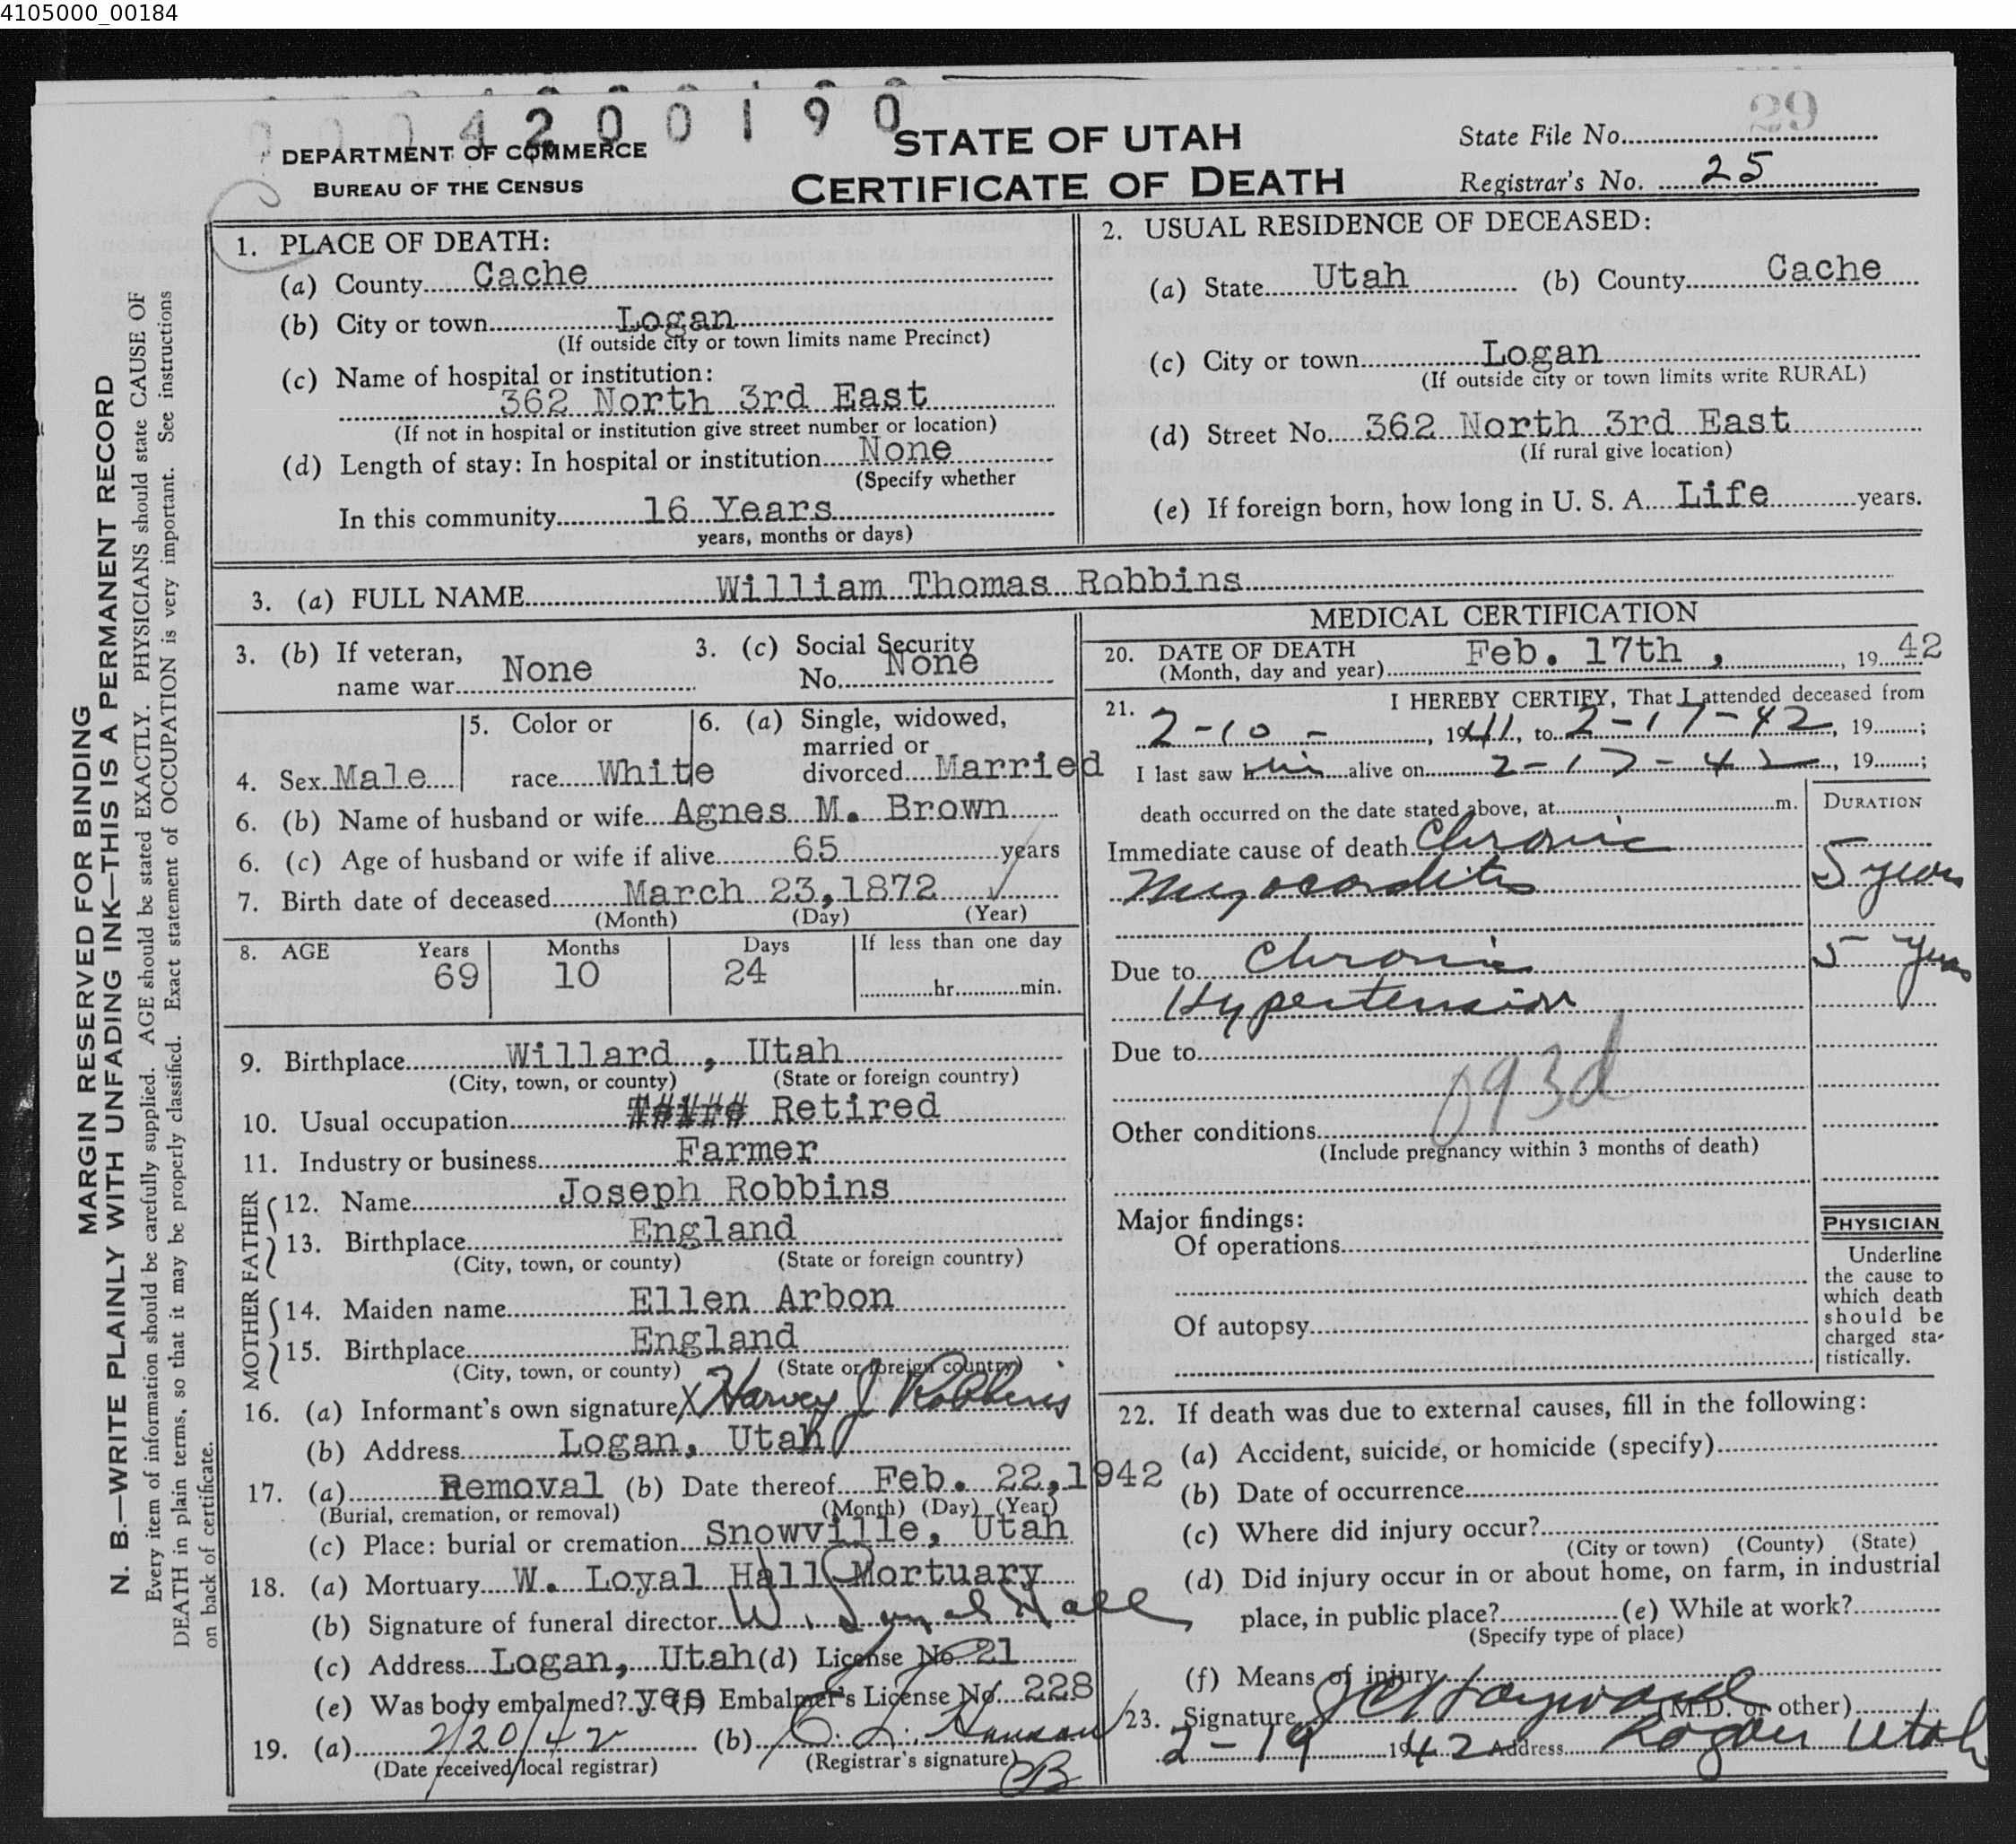 4105000_00184
0004200190
29
DEPARTMENT OF COMMERCE
BUREAU OF THE CENSUS
STATE OF UTAH
CERTIFICATE OF DEATH
State File No.
Registrar's No. 25
MARGIN RESERVED FOR BINDING
N. B.—WRITE PLAINLY WITH UNFADING INK—THIS IS A PERMANENT RECORD
Every item of information should be carefully supplied. AGE should be stated EXACTLY. PHYSICIANS should state CAUSE OF
DEATH in plain terms, so that it may be properly classified. Exact statement of OCCUPATION is very important. See instructions
on back of certificate.
1. PLACE OF DEATH:
(a) County Cache
(b) City or town Logan
(If outside city or town limits name Precinct)
(c) Name of hospital or institution:
362 North 3rd East
(If not in hospital or institution give street number or location)
(d) Length of stay: In hospital or institution None
(Specify whether
In this community 16 Years
years, months or days)
2. USUAL RESIDENCE OF DECEASED:
(a) State Utah (b) County Cache
(c) City or town Logan
(If outside city or town limits write RURAL)
(d) Street No. 362 North 3rd East
(If rural give location)
(e) If foreign born, how long in U. S. A. Life years.
3. (a) FULL NAME William Thomas Robbins
3. (b) If veteran,
name war None
3. (c) Social Security
No. None
4. Sex Male
5. Color or
race White
6. (a) Single, widowed,
married or
divorced Married
6. (b) Name of husband or wife Agnes M. Brown
6. (c) Age of husband or wife if alive 65 years
7. Birth date of deceased March 23, 1872
(Month) (Day) (Year)
8. AGE Years Months Days If less than one day
69 10 24 hr. min.
9. Birthplace Willard, Utah
(City, town, or county) (State or foreign country)
10. Usual occupation Retired
11. Industry or business Farmer
FATHER
12. Name Joseph Robbins
13. Birthplace England
(City, town, or county) (State or foreign country)
MOTHER
14. Maiden name Ellen Arbon
15. Birthplace England
(City, town, or county) (State or foreign country)
16. (a) Informant's own signature X Harvey J Robbins
(b) Address Logan, Utah
17. (a) Removal (b) Date thereof Feb. 22, 1942
(Burial, cremation, or removal) (Month) (Day) (Year)
(c) Place: burial or cremation Snowville, Utah
18. (a) Mortuary W. Loyal Hall Mortuary
(b) Signature of funeral director W. Loyal Hall
(c) Address Logan, Utah (d) License No. 21
(e) Was body embalmed? yes (f) Embalmer's License No. 228
19. (a) 2/20/42 (b) Hanson
(Date received local registrar) (Registrar's signature)
MEDICAL CERTIFICATION
20. DATE OF DEATH
(Month, day and year) Feb. 17th, , 19 42
21. I HEREBY CERTIFY, That I attended deceased from
2-10- , 1941, to 2-17-42, 19 ;
I last saw him alive on 2-17-42, 19 ;
death occurred on the date stated above, at m.
DURATION
Immediate cause of death Chronic
Myocarditis 5 years
Due to Chronic 5 years
Hypertension
Due to
093d
Other conditions
(Include pregnancy within 3 months of death)
Major findings:
Of operations
Of autopsy
PHYSICIAN
Underline
the cause to
which death
should be
charged sta-
tistically.
22. If death was due to external causes, fill in the following:
(a) Accident, suicide, or homicide (specify)
(b) Date of occurrence
(c) Where did injury occur?
(City or town) (County) (State)
(d) Did injury occur in or about home, on farm, in industrial
place, in public place? (e) While at work?
(Specify type of place)
(f) Means of injury
23. Signature Hayward (M.D. or other)
2-19 1942 Address Logan Utah